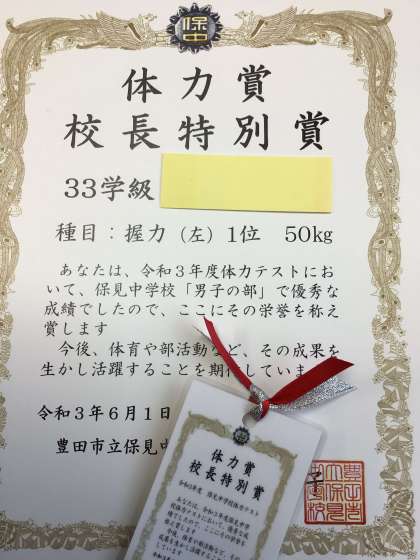 保中
体力賞
校長特別賞
33学級
種目：握力（左）1位 50kg
あなたは、令和3年度体力テストにお
いて、保見中学校「男子の部」で優秀な
成績でしたので、ここにその栄誉を称え
賞します
今後、体育や部活動など、その成果を
生かし活躍することを期待していま
令和3年6月1日
豊田市立保見中
体力賞
校長特別賞
令和3年度 保見中学校体力テスト
あなたは、令和3年度体力